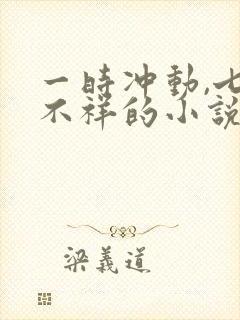 一時冲動,七
不祥的小説
梁義道